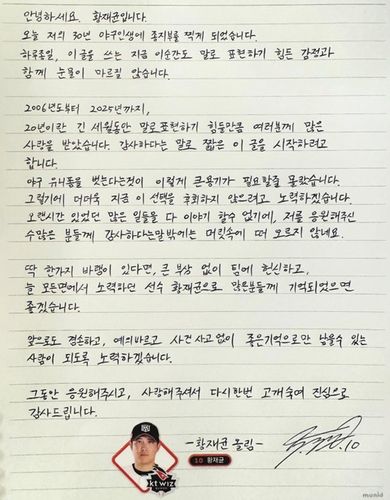 안녕하세요. 황재균입니다.
오늘 저의 30년 야구인생에 종지부를 찍게 되었습니다.
하루종일, 이 글을 쓰는 지금 이순간도 말로 표현하기 힘든 감정과
함께 눈물이 마르질 않습니다.
2006년도부터 2025년까지,
20년이란 긴 세월동안 말로표현하기 힘들만큼 여러분께 많은
사랑을 받았습니다. 감사하다는 말로 짧은 이 글을 시작하려고
합니다.
야구 유니폼을 벗는다는것이 이렇게 큰용기가 필요할줄 몰랐습니다.
그렇기에 더더욱 지금 이 선택을 후회하지 않으려고 노력하겠습니다.
오랜시간 있었던 많은 일들을 다 이야기 할수 없기에, 저를 응원해주신
수많은 분들께 감사하다는말밖에는 머릿속에 떠 오르지 않네요.
딱 한가지 바램이 있다면, 큰 부상 없이 팀에 헌신하고,
늘 모든면에서 노력하던 선수 황재균으로 많은분들께 기억되었으면
좋겠습니다.
앞으로도 겸손하고, 예의바르고 사건 사고 없이 좋은기억으로만 남을수 있는
사람이 되도록 노력하겠습니다.
그동안 응원해주시고, 사랑해주셔서 다시한번 고개숙여 진심으로
감사드립니다.
-황재균 올림-
10 황재균
kt wiz
munid